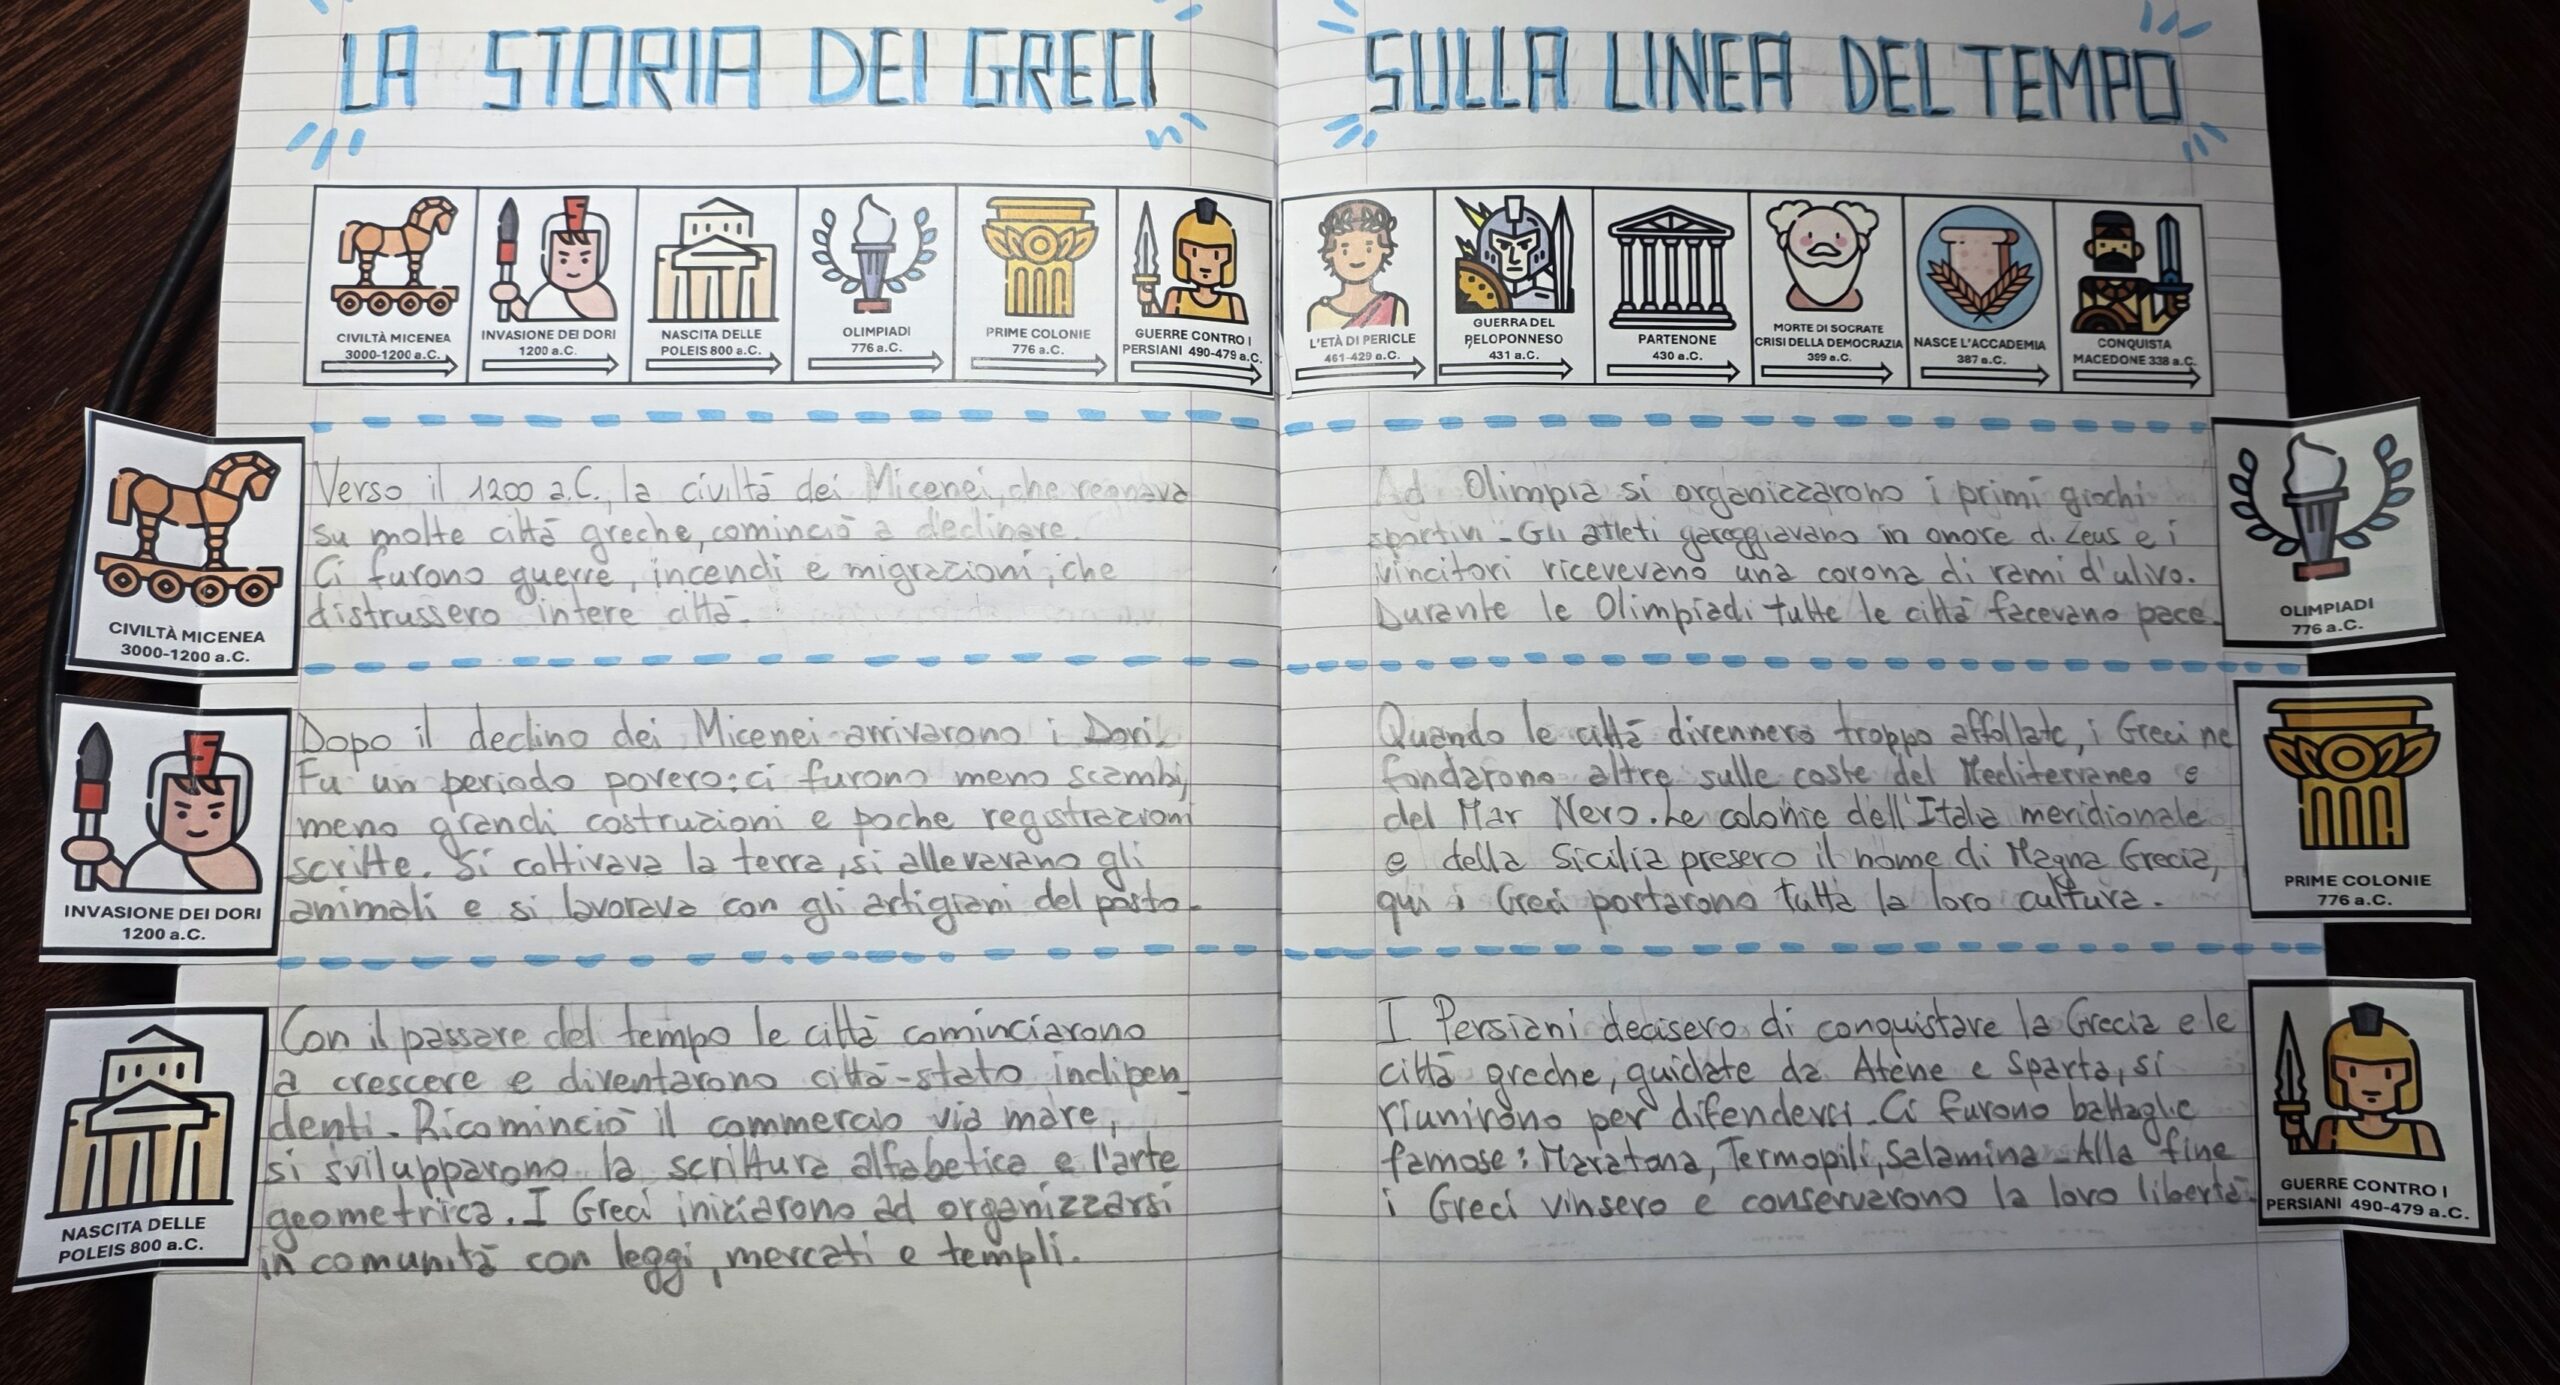 LA STORIA DEI GRECI SULLA LINEA DEL TEMPO
CIVILTÀ MICENEA
3000-1200 a.C.
INVASIONE DEI DORI
1200 a.C.
NASCITA DELLE
POLEIS 800 a.C.
OLIMPIADI
776 a.C.
PRIME COLONIE
776 a.C.
GUERRE CONTRO I
PERSIANI 490-479 a.C.
L'ETÀ DI PERICLE
461-429 a.C.
GUERRA DEL
PELOPONNESO
431 a.C.
PARTENONE
430 a.C.
MORTE DI SOCRATE
CRISI DELLA DEMOCRAZIA
399 a.C.
NASCE L'ACCADEMIA
387 a.C.
CONQUISTA
MACEDONE 338 a.C.
CIVILTÀ MICENEA
3000-1200 a.C.
Verso il 1200 a.C., la civiltà dei Micenei, che regnava
su molte città greche, cominciò a declinare.
Ci furono guerre, incendi e migrazioni, che
distrussero intere città.
INVASIONE DEI DORI
1200 a.C.
Dopo il declino dei Micenei arrivarono i Dori.
Fu un periodo povero: ci furono meno scambi,
meno grandi costruzioni e poche registrazioni
scritte. Si coltivava la terra, si allevavano gli
animali e si lavorava con gli artigiani del posto.
NASCITA DELLE
POLEIS 800 a.C.
Con il passare del tempo le città cominciarono
a crescere e diventarono città-stato indipen_
denti. Ricominciò il commercio via mare,
si svilupparono la scrittura alfabetica e l'arte
geometrica. I Greci iniziarono ad organizzarsi
in comunità con leggi, mercati e templi.
Ad Olimpia si organizzarono i primi giochi
sportivi. Gli atleti gareggiavano in onore di Zeus e i
vincitori ricevevano una corona di rami d'ulivo.
Durante le Olimpiadi tutte le città facevano pace.
OLIMPIADI
776 a.C.
Quando le città divennero troppo affollate, i Greci ne
fondarono altre sulle coste del Mediterraneo e
del Mar Nero. Le colonie dell'Italia meridionale
e della Sicilia presero il nome di Magna Grecia,
qui i Greci portarono tutta la loro cultura.
PRIME COLONIE
776 a.C.
I Persiani decisero di conquistare la Grecia e le
città greche, guidate da Atene e Sparta, si
riunirono per difendersi. Ci furono battaglie
famose: Maratona, Termopili, Salamina. Alla fine
i Greci vinsero e conservarono la loro libertà.
GUERRE CONTRO I
PERSIANI 490-479 a.C.